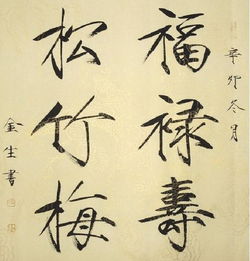 辛卯冬月
福禄寿
松竹梅
金生書